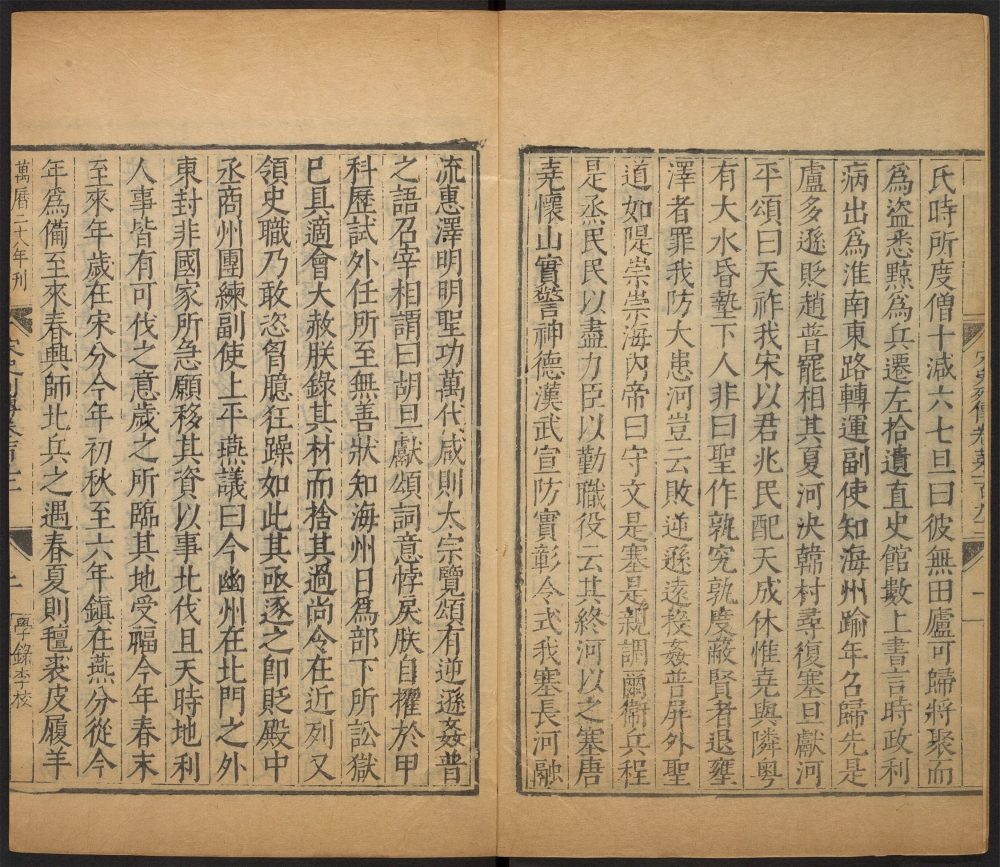 氏時所度僧十減六七旦曰彼無田廬可歸將聚而
爲盜悉黥爲兵遷左拾遺直史館數上書言時政利
病出爲淮南東路轉運副使知海州踰年召歸先是
盧多遜貶趙普罷相其夏河決韓村尋復塞旦獻河
平頌曰天祚我宋以君兆民配天成休惟堯與隣粤
有大水昏墊下人非曰聖作孰究孰度蔽賢者退壅
澤者罪我防大患河豈云敗逆遜遠投姦普屏外聖
道如隄崇崇海內帝曰守文是塞是親調爾衛兵程
是烝民民以盡力臣以勤職役云其終河以之塞唐
堯懷山實警神德漢武宣防實彰令式我塞長河融
流惠澤明明聖功萬代咸則太宗覽頌有逆遜姦普
之語召宰相謂曰胡旦獻頌詞意悖戾朕自擢於甲
科歷試外任所至無善狀知海州日爲部下所訟獄
已具適會大赦朕錄其材而捨其過尚令在近列又
領史職乃敢恣胷臆狂躁如此其亟逐之卽貶殿中
丞商州團練副使上平燕議曰今幽州在北門之外
東封非國家所急願移其資以事北伐且天時地利
人事皆有可伐之意歲之所臨其地受福今年春末
至來年歲在宋分今年初秋至六年鎭在燕分從今
年爲備至來春興師北兵之遇春夏則氊裘皮履羊
萬曆二十年刊
二
學錄李校